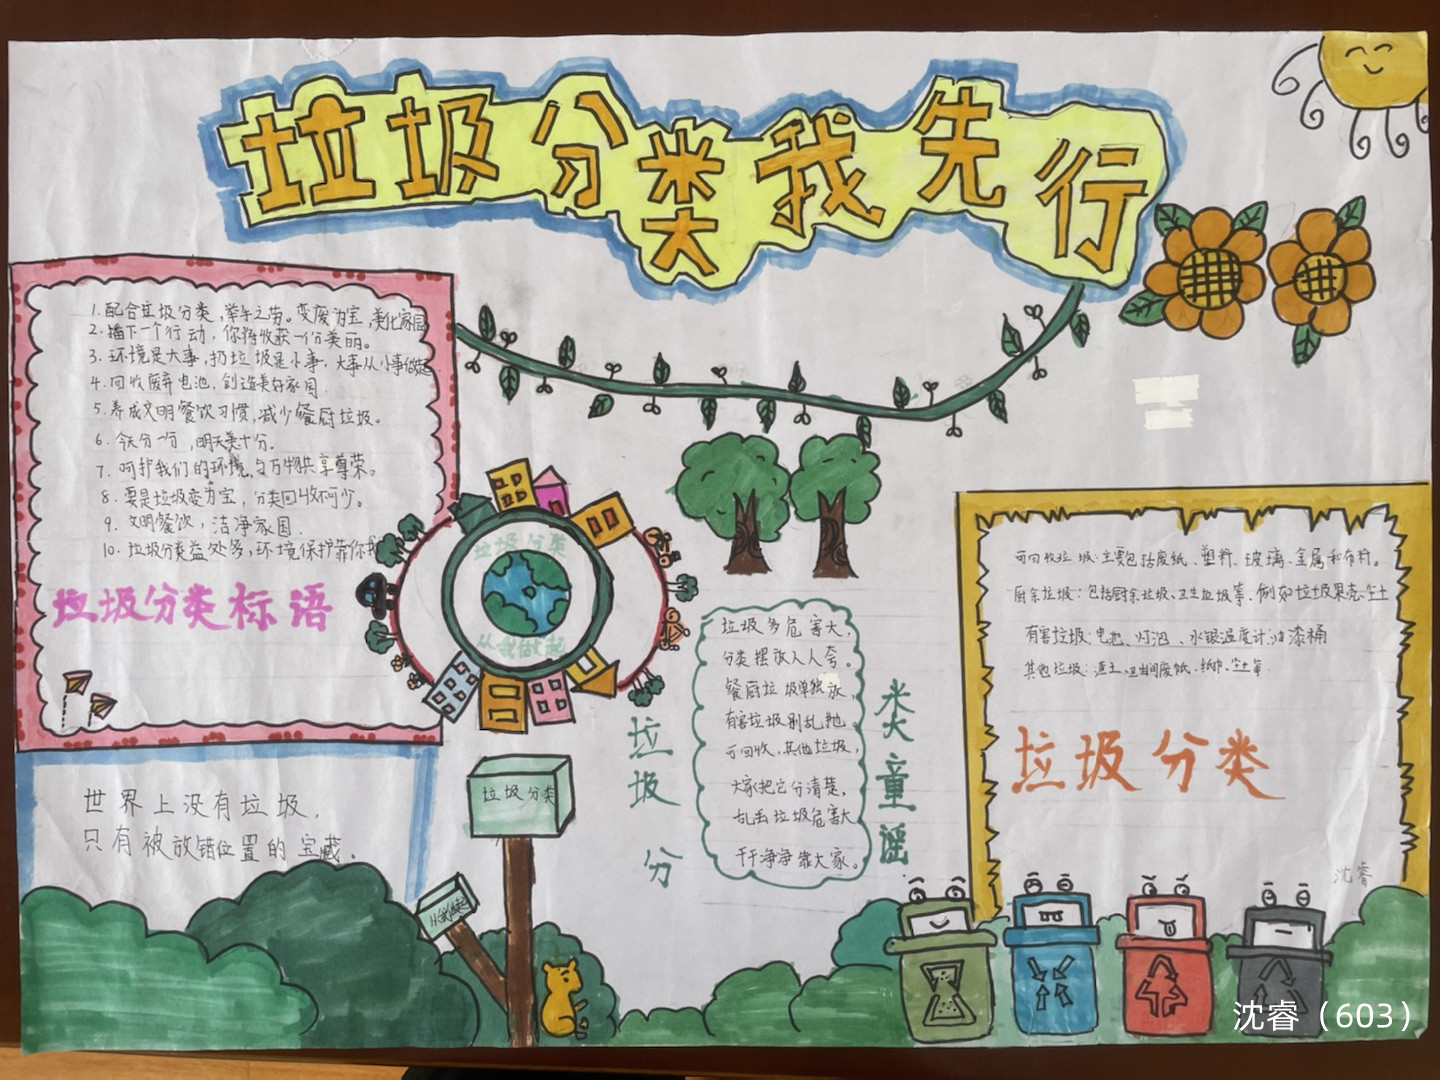 垃圾分类我先行
1.配合垃圾分类,举手之劳。变废为宝,美化家园
2.播下一个行动,你将收获一份美丽。
3.环境是大事,扔垃圾是小事,大事从小事做起
4.回收废弃电池,创造美好家园.
5.养成文明餐饮习惯,减少餐厨垃圾。
6.今天分一分,明天美十分。
7.呵护我们的环境,与万物共享尊荣。
8.要是垃圾变为宝,分类回收不可少。
9.文明餐饮,洁净家园.
10.垃圾分类益处多,环境保护靠你我
垃圾分类标语
世界上没有垃圾,
只有被放错位置的宝藏。
垃圾分类
从我做起
垃圾分类
从我做起
垃圾分类童谣
垃圾多危害大,
分类摆放人人夸。
餐厨垃圾单独放,
有害垃圾别乱抛。
可回收,其他垃圾,
大家把它分清楚,
乱丢垃圾危害大
干干净净靠大家。
可回收垃圾:主要包括废纸、塑料、玻璃、金属和布料。
厨余垃圾:包括厨余垃圾、卫生垃圾等,例如垃圾果壳尘土
有害垃圾:电池、灯泡、水银温度计、油漆桶
其他垃圾:渣土、卫生间废纸、纸巾、尘土等.
垃圾分类
沈睿
沈睿(603)